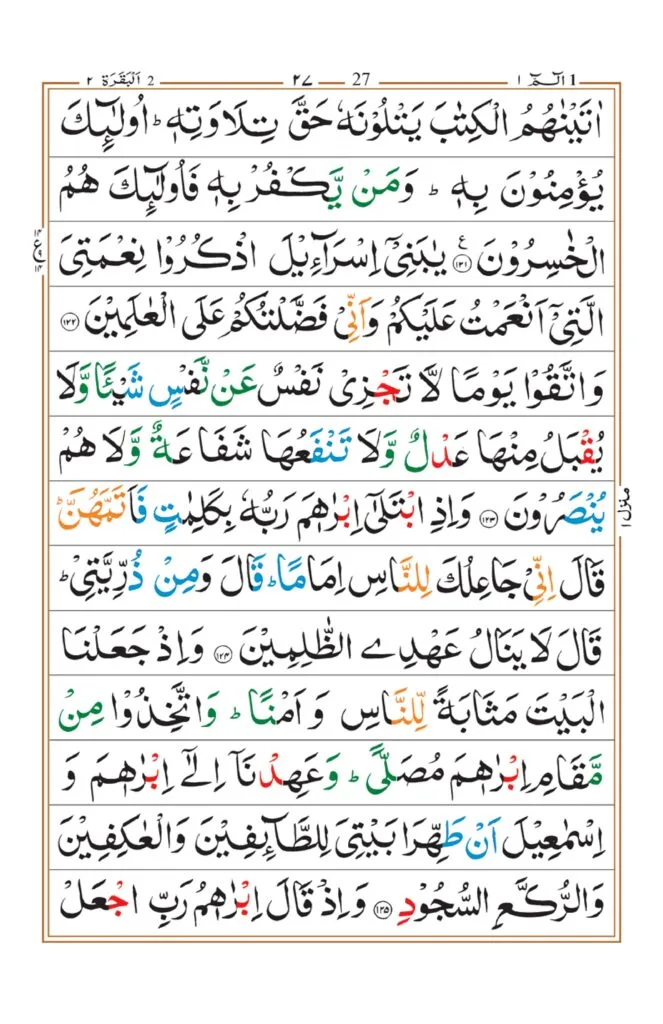 الٓمّٓ ١ 1 27 ٢٧ 2 اَلْبَقَرَة ٢
اٰتَيْنٰهُمُ الْكِتٰبَ يَتْلُوْنَهٗ حَقَّ تِلَاوَتِهٖ ؕ اُولٰٓئِكَ
يُؤْمِنُوْنَ بِهٖ ؕ وَمَنْ يَّكْفُرْ بِهٖ فَاُولٰٓئِكَ هُمُ
الْخٰسِرُوْنَ ﴿۱۲۱﴾ ع يٰبَنِىْٓ اِسْرَآءِيْلَ اذْكُرُوْا نِعْمَتِىَ
الَّتِىْٓ اَنْعَمْتُ عَلَيْكُمْ وَاَنِّىْ فَضَّلْتُكُمْ عَلَى الْعٰلَمِيْنَ ﴿۱۲۲﴾
وَاتَّقُوْا يَوْمًا لَّا تَجْزِىْ نَفْسٌ عَنْ نَّفْسٍ شَيْـًٔا وَّلَا
يُقْبَلُ مِنْهَا عَدْلٌ وَّلَا تَنْفَعُهَا شَفَاعَةٌ وَّلَا هُمْ
يُنْصَرُوْنَ ﴿۱۲۳﴾ وَاِذِ ابْتَلٰٓى اِبْرٰهٖمَ رَبُّهٗ بِكَلِمٰتٍ فَاَتَمَّهُنَّ ؕ
منزل ١
قَالَ اِنِّىْ جَاعِلُكَ لِلنَّاسِ اِمَامًا ؕ قَالَ وَمِنْ ذُرِّيَّتِىْ ؕ
قَالَ لَا يَنَالُ عَهْدِى الظّٰلِمِيْنَ ﴿۱۲۴﴾ وَاِذْ جَعَلْنَا
الْبَيْتَ مَثَابَةً لِّلنَّاسِ وَاَمْنًا ؕ وَاتَّخِذُوْا مِنْ
مَّقَامِ اِبْرٰهٖمَ مُصَلًّى ؕ وَعَهِدْنَآ اِلٰٓى اِبْرٰهٖمَ وَ
اِسْمٰعِيْلَ اَنْ طَهِّرَا بَيْتِىَ لِلطَّآئِفِيْنَ وَالْعٰكِفِيْنَ
وَالرُّكَّعِ السُّجُوْدِ ﴿۱۲۵﴾ وَاِذْ قَالَ اِبْرٰهٖمُ رَبِّ اجْعَلْ